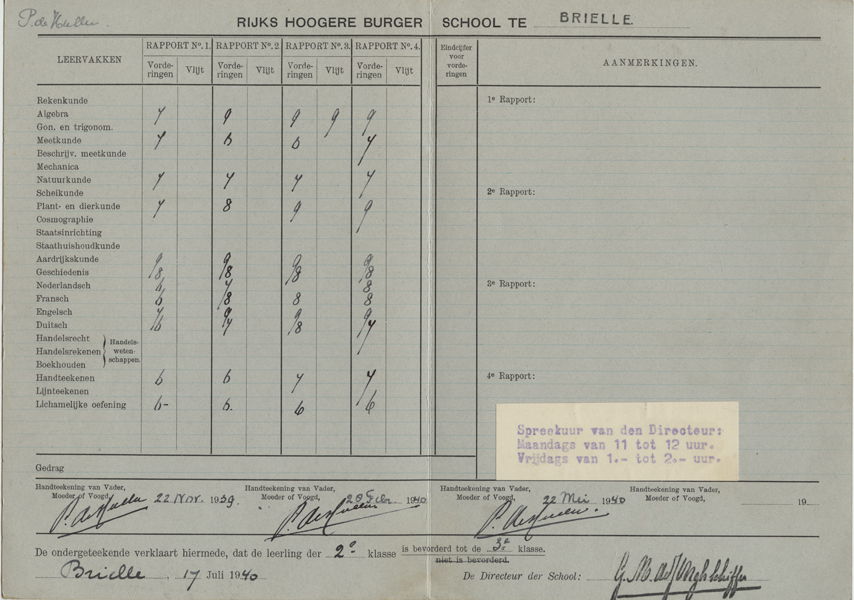 RIJKS HOOGERE BURGER SCHOOL TE BRIELLE.
LEERVAKKEN
RAPPORT No. 1. RAPPORT No. 2. RAPPORT No. 3. RAPPORT No. 4.
Vorde-ringen Vlijt Vorde-ringen Vlijt Vorde-ringen Vlijt Vorde-ringen Vlijt
Eindcijfer voor vorde-ringen
AANMERKINGEN.
Rekenkunde
Algebra 7 9 9 9 9
Gon. en trigonom.
Meetkunde 7 6 6 7
Beschrijv. meetkunde
Mechanica
Natuurkunde 7 7 7 7
Scheikunde
Plant- en dierkunde 7 8 9 9
Cosmographie
Staatsinrichting
Staathuishoudkunde
Aardrijkskunde 9 9 9 9
Geschiedenis 8 8 8 8
Nederlandsch
Fransch 6 8 8 8
Engelsch 7 9 9 9
Duitsch 6 7 8 7
Handelsrecht
Handelsrekenen
Boekhouden
Handels-weten-schappen.
Handteekenen 6 6 7 7
Lijnteekenen
Lichamelijke oefening 6- 6. 6 6
Gedrag
1e Rapport:
2e Rapport:
3e Rapport:
4e Rapport:
Spreekuur van den Directeur:
Maandags van 11 tot 12 uur.
Vrijdags van 1.- tot 2.- uur.
Handteekening van Vader, Moeder of Voogd, 22 Nov. 1939
Handteekening van Vader, Moeder of Voogd, 1940
Handteekening van Vader, Moeder of Voogd, 22 Mei 1940
Handteekening van Vader, Moeder of Voogd, 19
De ondergeteekende verklaart hiermede, dat de leerling der 2e klasse is bevorderd tot de 3e klasse.
niet is bevorderd.
Brielle, 17 Juli 1940
De Directeur der School: